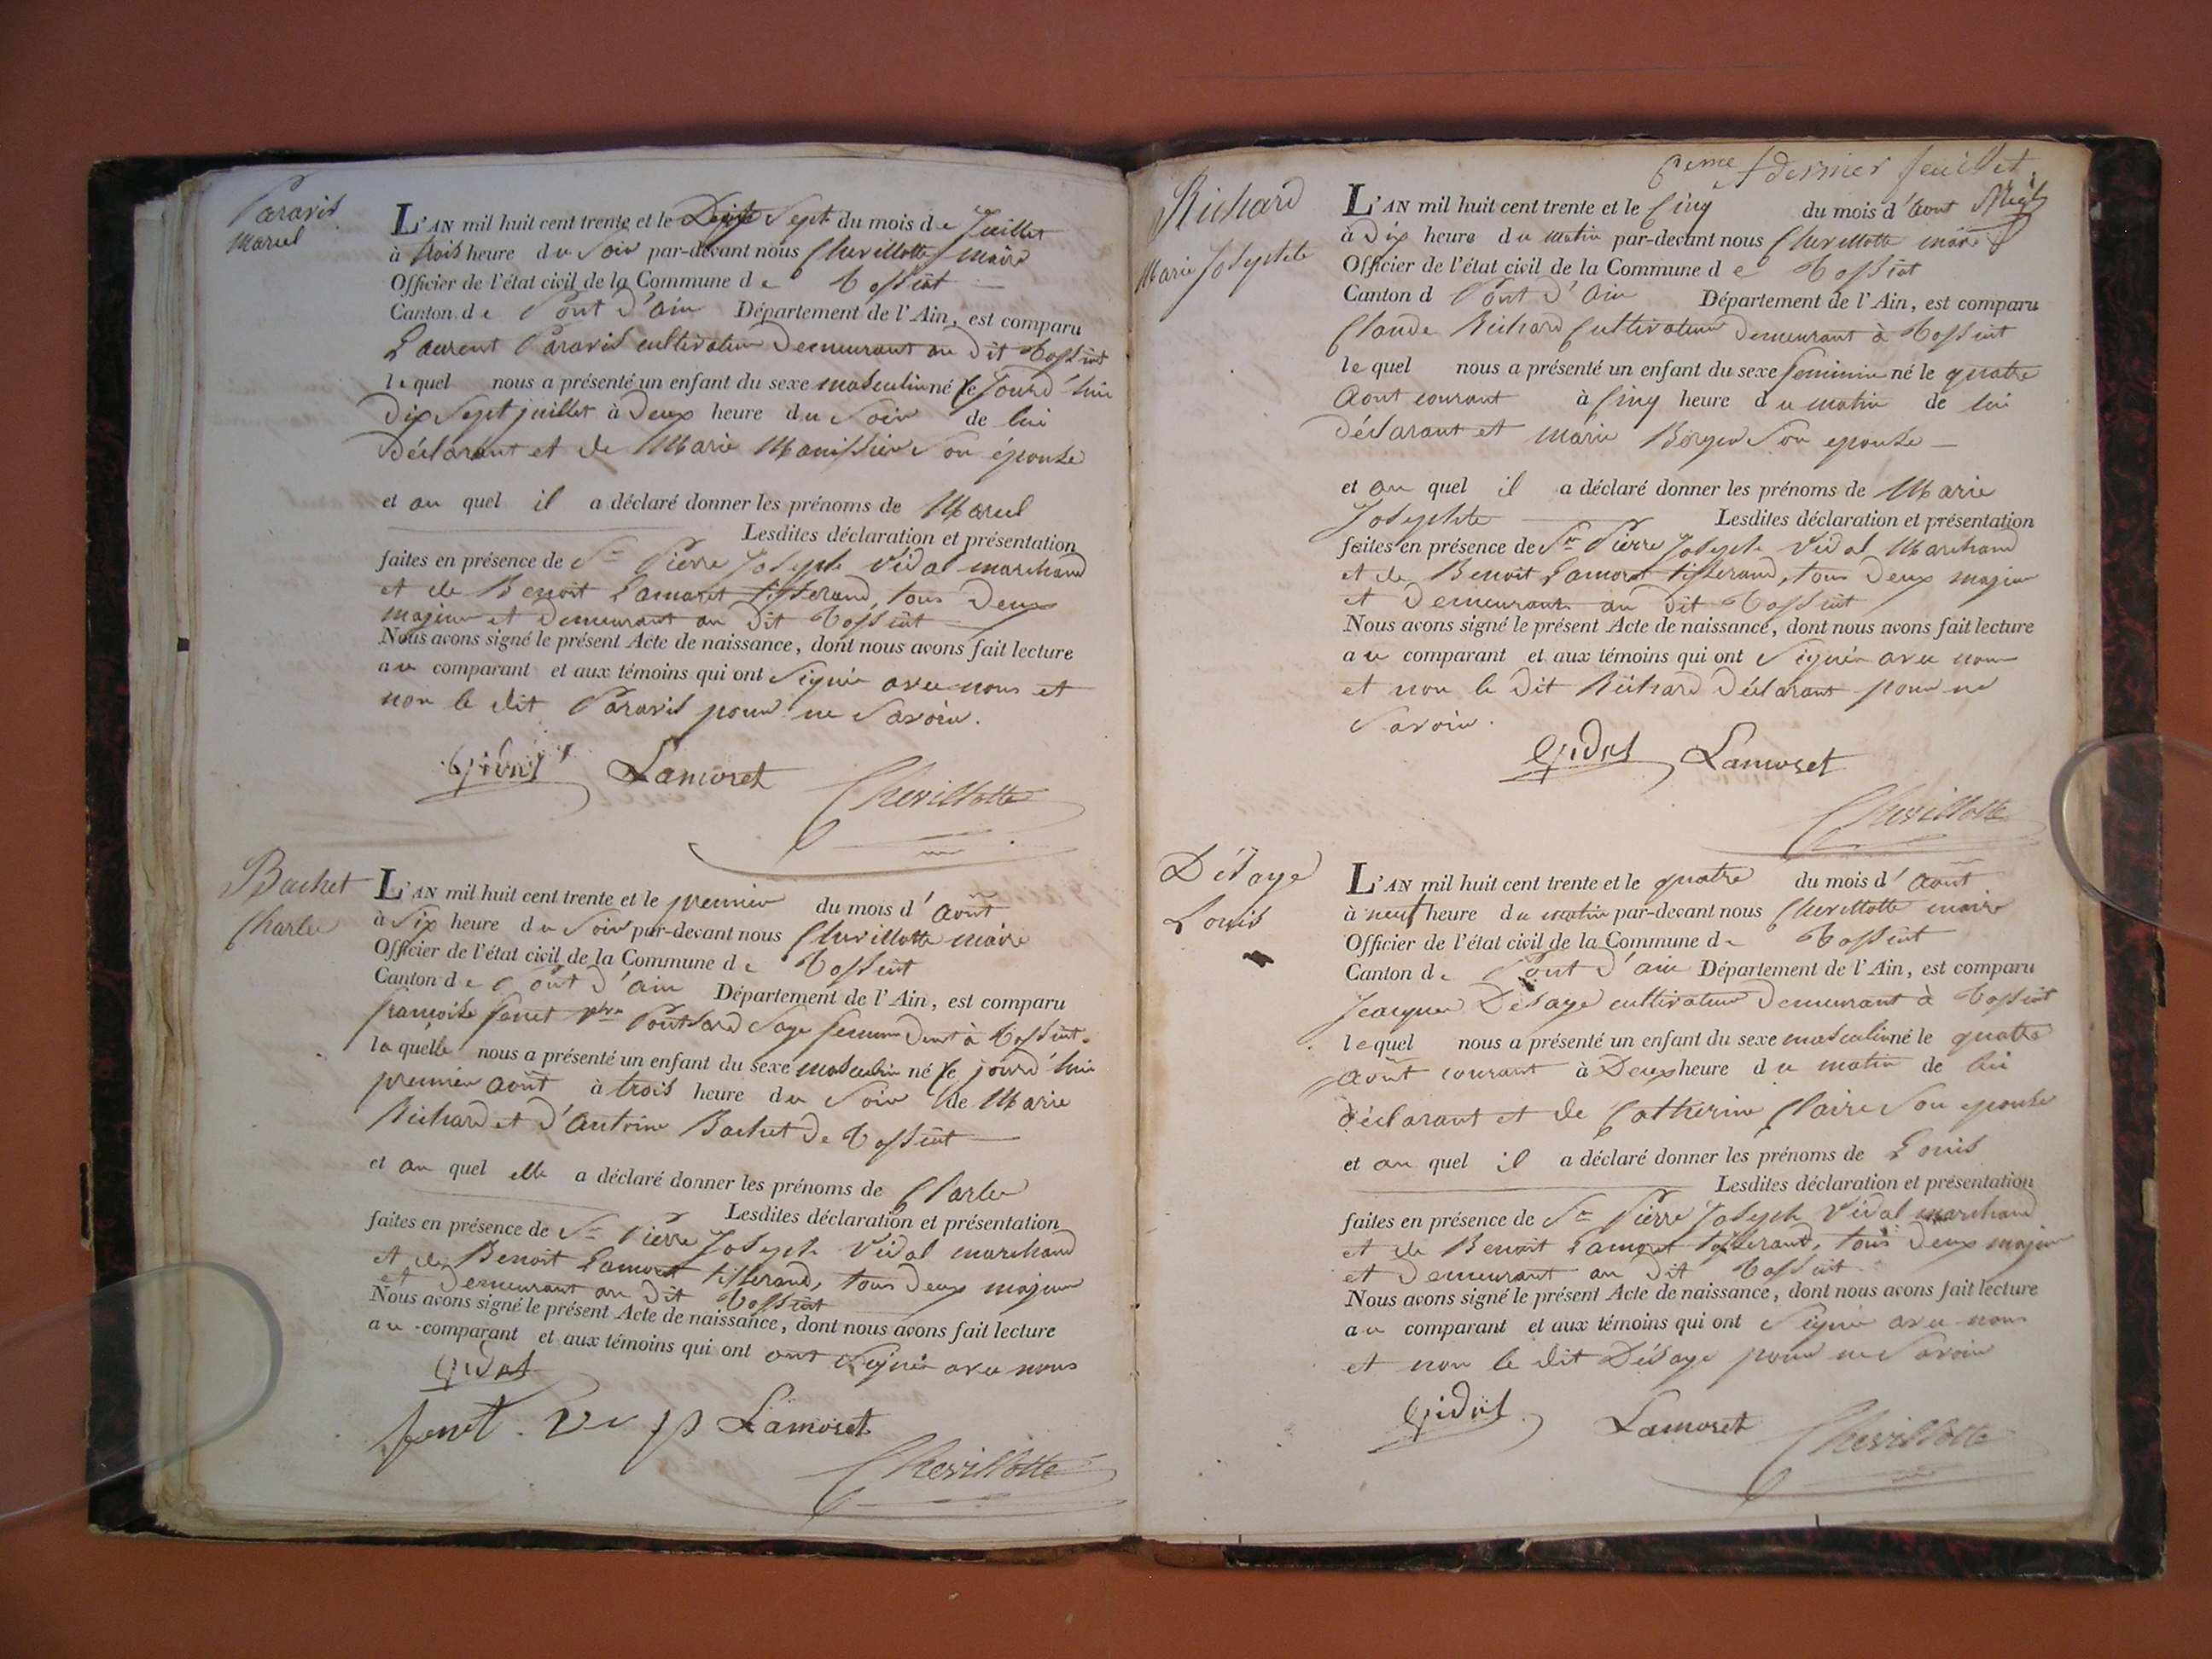 Pararis
Marcel
L'AN mil huit cent trente et le Dix Sept du mois de Juillet
à trois heure du Soir par-devant nous Chevillotte maire
Officier de l'état civil de la Commune de Tossiat
Canton de Pont d'ain Département de l'Ain, est comparu
Laurent Pararis cultivateur Demeurant au Dit Tossiat
lequel nous a présenté un enfant du sexe masculin né le Jourd'hui
Dix Sept juillet à Deux heure du Soir de lui
Déclarant et de Marie Manissier Son épouse
et au quel il a déclaré donner les prénoms de Marcel
Lesdites déclaration et présentation
faites en présence de Sr Pierre Joseph Vidal marchand
et de Benoit Lamoret tisserand, tous Deux
majeur et Demeurant au Dit Tossiat
Nous avons signé le présent Acte de naissance, dont nous avons fait lecture
au comparant et aux témoins qui ont Signé avec nous et
non le dit Pararis pour ne Savoir.
Vidal Lamoret
Chevillotte
Bachet
Charles
L'AN mil huit cent trente et le premier du mois d'Août
à Six heure du Soir par-devant nous Chevillotte maire
Officier de l'état civil de la Commune de Tossiat
Canton de Pont d'ain Département de l'Ain, est comparu
françoise fenet Sage femme à Tossiat.
laquelle nous a présenté un enfant du sexe masculin né le jourd'hui
premier août à trois heure du Soir de Marie
Richard et d'Antoine Bachet De Tossiat
et au quel elle a déclaré donner les prénoms de Charles
Lesdites déclaration et présentation
faites en présence de Sr Pierre Joseph Vidal marchand
et de Benoit Lamoret tisserand, tous Deux majeur
et Demeurant au Dit Tossiat
Nous avons signé le présent Acte de naissance, dont nous avons fait lecture
au comparant et aux témoins qui ont ont Signé avec nous
Vidal
fenet Ve p Lamoret
Chevillotte
6eme & dernier feuillet
Richard
Marie Josephte
L'AN mil huit cent trente et le Cinq du mois d'Aout
à Dix heure du matin par-devant nous Chevillotte maire
Officier de l'état civil de la Commune de Tossiat
Canton d Pont d'Ain Département de l'Ain, est comparu
Claude Richard Cultivateur Demeurant à Tossiat
lequel nous a présenté un enfant du sexe feminin né le quatre
Aout courant à Cinq heure du matin de lui
déclarant et Marie Son epouse
et au quel il a déclaré donner les prénoms de Marie
Josephte Lesdites déclaration et présentation
faites en présence de Sr Pierre Joseph Vidal Marchand
et de Benoit Lamoret tisserand, tous Deux majeur
et Demeurant au Dit Tossiat
Nous avons signé le présent Acte de naissance, dont nous avons fait lecture
au comparant et aux témoins qui ont Signé avec nous
et non le Dit Richard Déclarant pour ne
Savoir.
Vidal Lamoret
Chevillotte
Désaye
Louis
L'AN mil huit cent trente et le quatre du mois d'Août
à neuf heure du matin par-devant nous Chevillotte maire
Officier de l'état civil de la Commune de Tossiat
Canton de Pont d'ain Département de l'Ain, est comparu
Jacques Désaye cultivateur Demeurant à Tossiat
lequel nous a présenté un enfant du sexe masculin né le quatre
Août courant à Deux heure du matin de lui
déclarant et de Catherine Claire Son epouse
et au quel il a déclaré donner les prénoms de Louis
Lesdites déclaration et présentation
faites en présence de Sr Pierre Joseph Vidal marchand
et de Benoit Lamoret tisserand, tous Deux majeur
et Demeurant au Dit Tossiat
Nous avons signé le présent Acte de naissance, dont nous avons fait lecture
au comparant et aux témoins qui ont Signé avec nous
et non le dit Désaye pour ne Savoir
Vidal Lamoret Chevillotte